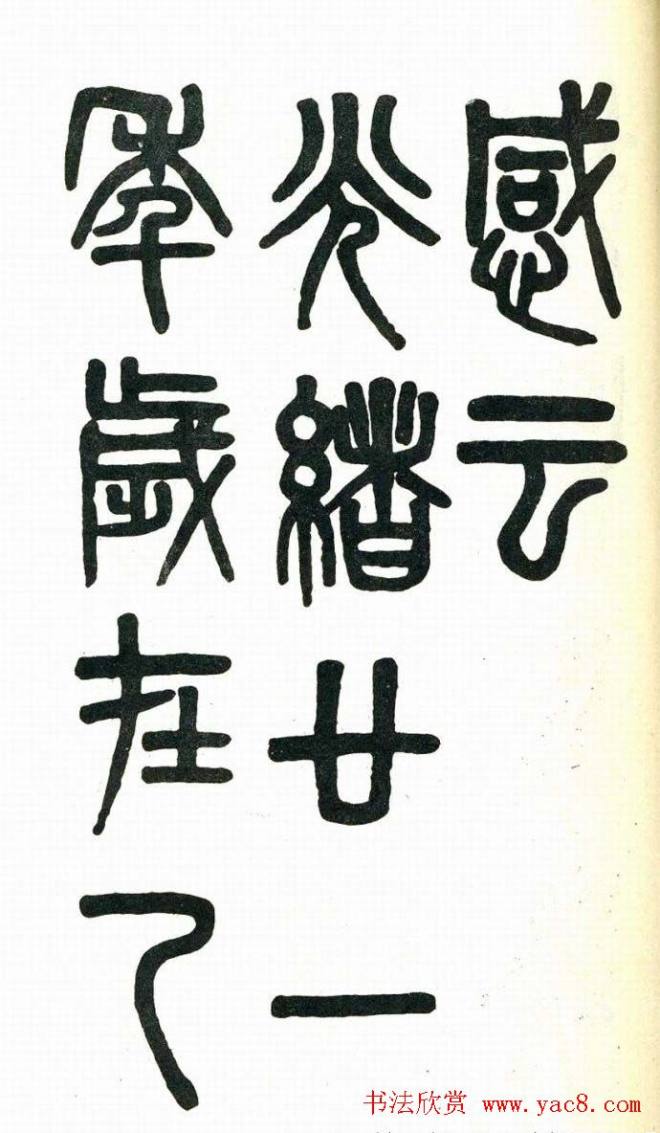 感云
光緒廿一
年歲在乙
书法欣赏 www.yac8.com